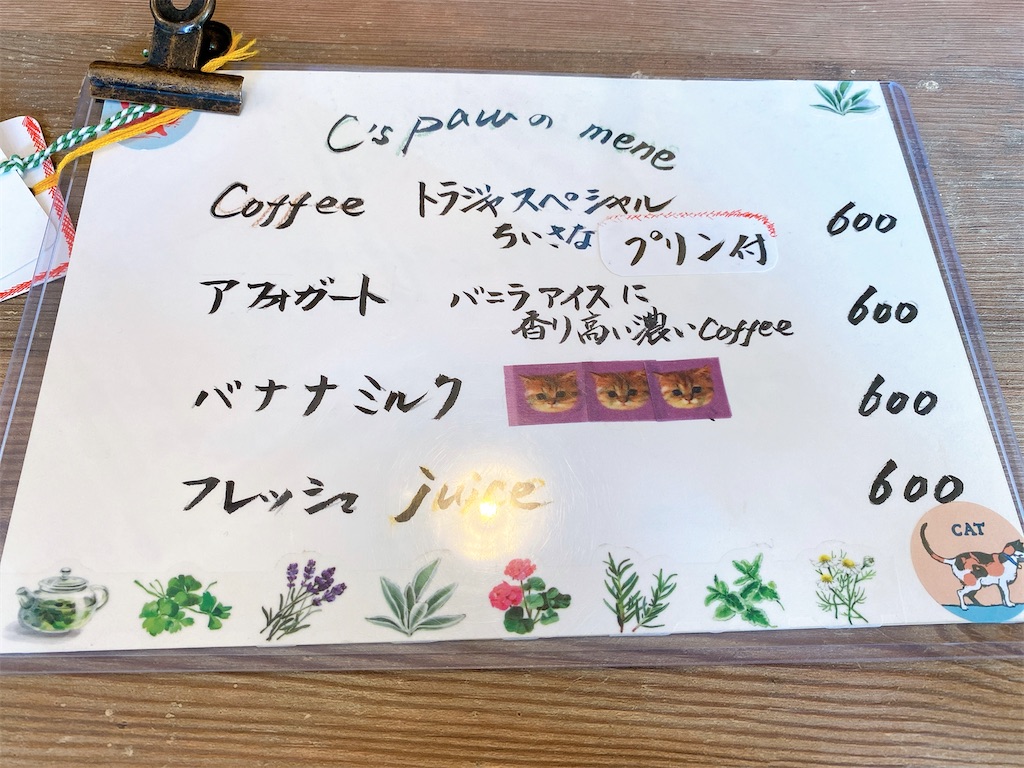 C's pawの mene
Coffee トラジャスペシャル 600
ちいさな プリン付
アフォガート バニラアイスに 600
香り高い濃いCoffee
バナナミルク 600
フレッシュ juice 600
CAT